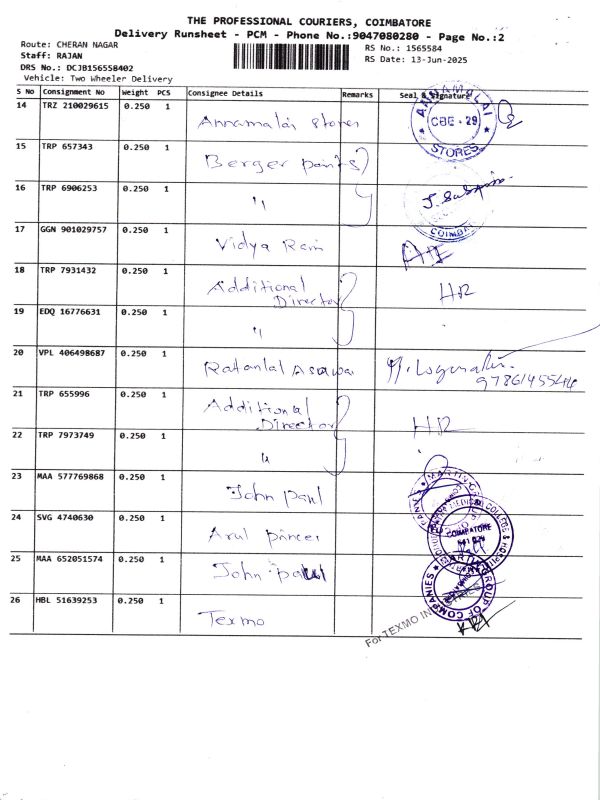 THE PROFESSIONAL COURIERS, COIMBATORE
Delivery Runsheet - PCM - Phone No.:9047080280 - Page No.:2
Route: CHERAN NAGAR
RS No.: 1565584
Staff: RAJAN
RS Date: 13-Jun-2025
DRS No.: DCJB156558402
Vehicle: Two Wheeler Delivery
S No Consignment No Weight PCS Consignee Details Remarks Seal & Signature
14 TRZ 210029615 0.250 1 Annamalai Stores
ANNAMALAI
CBE - 29
STORES
15 TRP 657343 0.250 1 Berger paints
16 TRP 6906253 0.250 1 "
COIMBA
17 GGN 901029757 0.250 1 Vidya Ram
18 TRP 7931432 0.250 1 Additional Director HR
19 EDQ 16776631 0.250 1 "
20 VPL 406498687 0.250 1 Ratanlal
21 TRP 655996 0.250 1 Additional Director HR
22 TRP 7973749 0.250 1 "
23 MAA 577769868 0.250 1 John paul
24 SVG 4740630 0.250 1 Arul
COLLEGE &
COIMBATORE
25 MAA 652051574 0.250 1 John paul
MARTIN GROUP OF COMPANIES
26 HBL 51639253 0.250 1 Texmo
For TEXMO INDUSTRIES